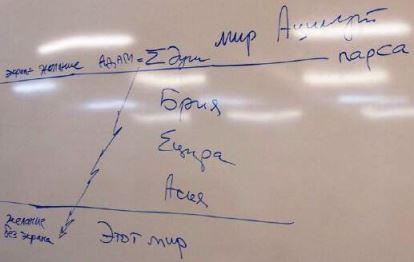 мир Ацилут
экран+ желание АДАМ = Σ душ
парса
Брия
Ецира
Асия
желание
без экрана
Этот мир